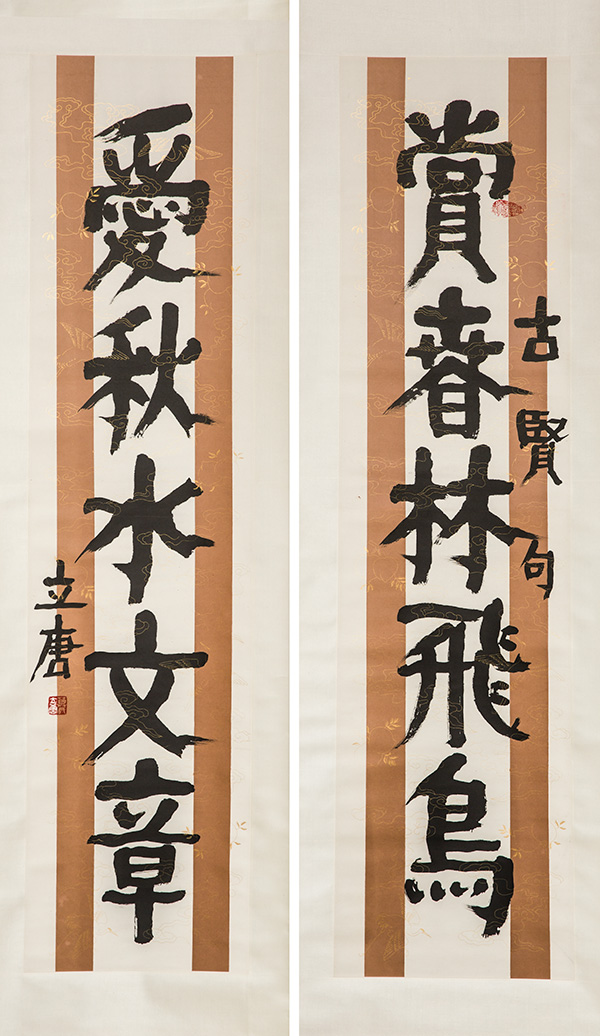 古賢句
賞春林飛鳥
愛秋水文章
立唐